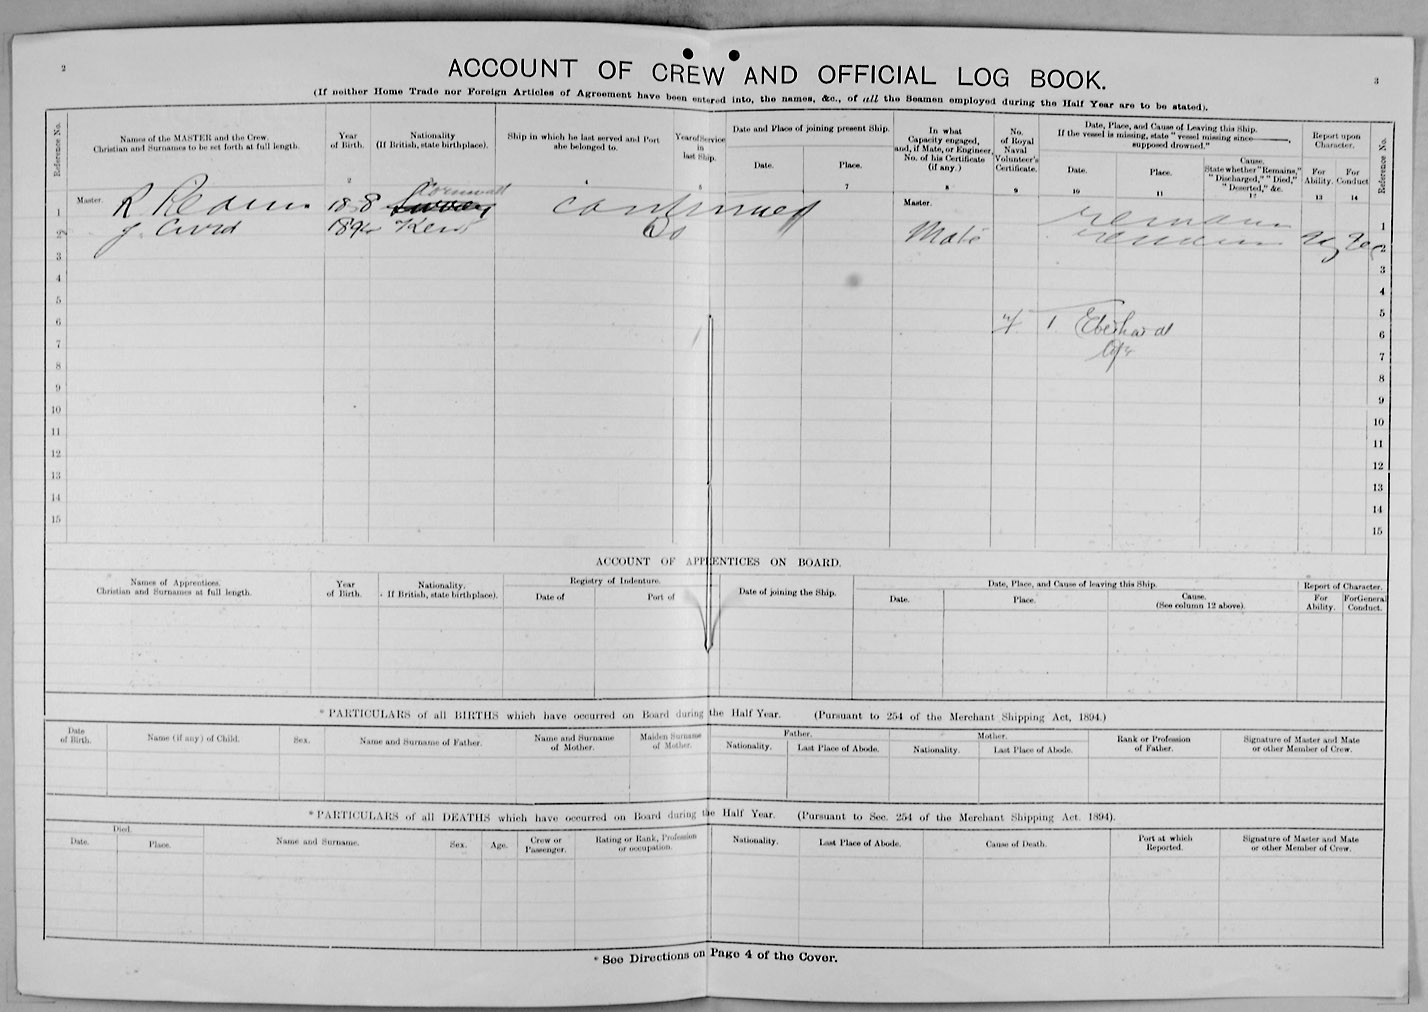 2
3
ACCOUNT OF CREW AND OFFICIAL LOG BOOK.
(If neither Home Trade nor Foreign Articles of Agreement have been entered into, the names, &c., of all the Seamen employed during the Half Year are to be stated).
Reference No.
Names of the MASTER and the Crew.
Christian and Surnames to be set forth at full length.
Year of Birth.
2
Nationality
(If British, state birthplace).
Ship in which he last served and Port she belonged to.
Year of Service in last Ship.
Date and Place of joining present Ship.
Date.
Place.
7
In what Capacity engaged, and, if Mate, or Engineer, No. of his Certificate (if any.)
8
No. of Royal Naval Volunteer's Certificate.
9
Date, Place, and Cause of Leaving this Ship.
If the vessel is missing, state "vessel missing since———, supposed drowned."
Date.
10
Place.
11
Cause.
State whether "Remains," "Discharged," "Died," "Deserted," &c.
12
Report upon Character.
For Ability.
13
For Conduct
14
Reference No.
Cornwall
1 Master. R 18 8 continued Master. remains 1
2 1894 Do Mate remains 2
3 3
4 4
5 5
6 T Eberhard 6
7 7
8 8
9 9
10 10
11 11
12 12
13 13
14 14
15 15
ACCOUNT OF APPRENTICES ON BOARD.
Names of Apprentices.
Christian and Surnames at full length.
Year of Birth.
Nationality.
If British, state birthplace).
Registry of Indenture.
Date of
Port of
Date of joining the Ship.
Date, Place, and Cause of leaving this Ship.
Date.
Place.
Cause.
(See column 12 above).
Report of Character.
For Ability.
For General Conduct.
* PARTICULARS of all BIRTHS which have occurred on Board during the Half Year. (Pursuant to 254 of the Merchant Shipping Act, 1894.)
Date of Birth.
Name (if any) of Child.
Sex.
Name and Surname of Father.
Name and Surname of Mother.
Maiden Surname of Mother.
Father.
Nationality.
Last Place of Abode.
Mother.
Nationality.
Last Place of Abode.
Rank or Profession of Father.
Signature of Master and Mate or other Member of Crew.
* PARTICULARS of all DEATHS which have occurred on Board during the Half Year. (Pursuant to Sec. 254 of the Merchant Shipping Act. 1894).
Died.
Date.
Place.
Name and Surname.
Sex.
Age.
Crew or Passenger.
Rating or Rank, Profession or occupation.
Nationality.
Last Place of Abode.
Cause of Death.
Port at which Reported.
Signature of Master and Mate or other Member of Crew.
* See Directions on Page 4 of the Cover.